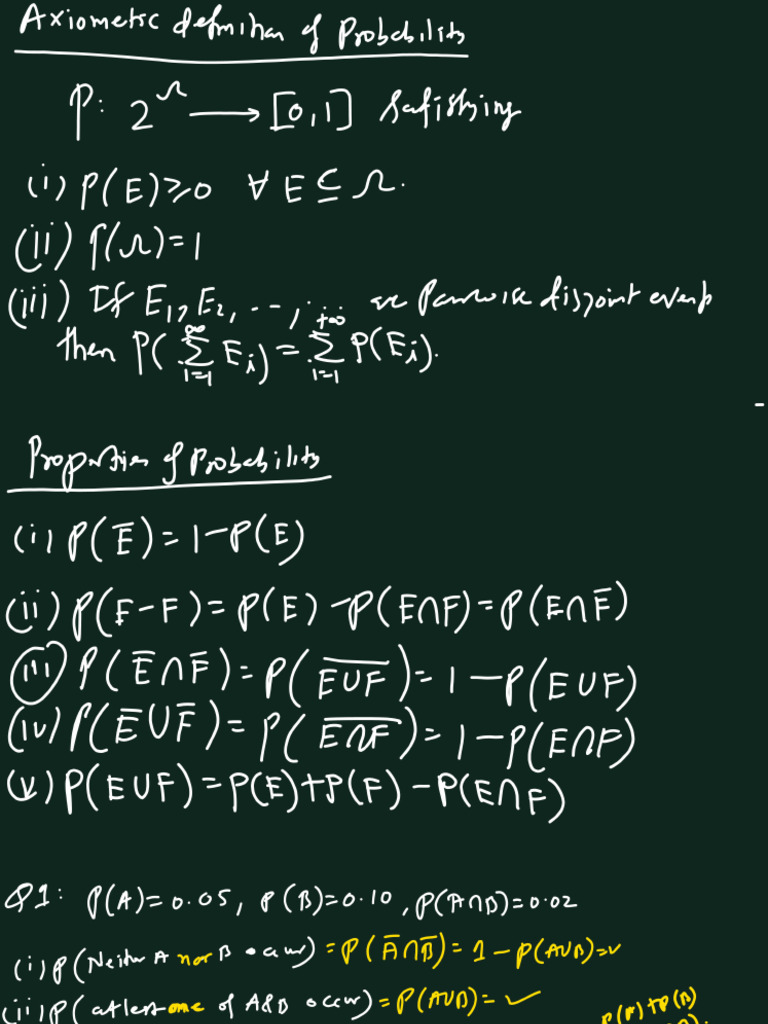 Axiometic definition of Probability
P: 2^Ω → [0,1] Satisfying
(i) P(E) ≥ 0 ∀ E ⊆ Ω.
(ii) P(Ω) = 1
(iii) If E₁, E₂, ---, ... are Pairwise disjoint events
then P( ∑_{i=1}^{∞} E_i ) = ∑_{i=1}^{+∞} P(E_i).
Properties of Probability
(i) P(E̅) = 1 - P(E)
(ii) P(E-F) = P(E) - P(E∩F) = P(E∩F̅)
(iii) P(E̅∩F̅) = P(\overline{E∪F}) = 1 - P(E∪F)
(iv) P(E̅∪F̅) = P(\overline{E∩F}) = 1 - P(E∩F)
(v) P(E∪F) = P(E) + P(F) - P(E∩F)
Q1: P(A) = 0.05, P(B) = 0.10, P(A∩B) = 0.02
(i) P(Neither A nor B occur) = P(A̅∩B̅) = 1 - P(A∪B) = ✓
(ii) P(atleast one of A&B occur) = P(A∪B) = ✓
P(A) + P(B)